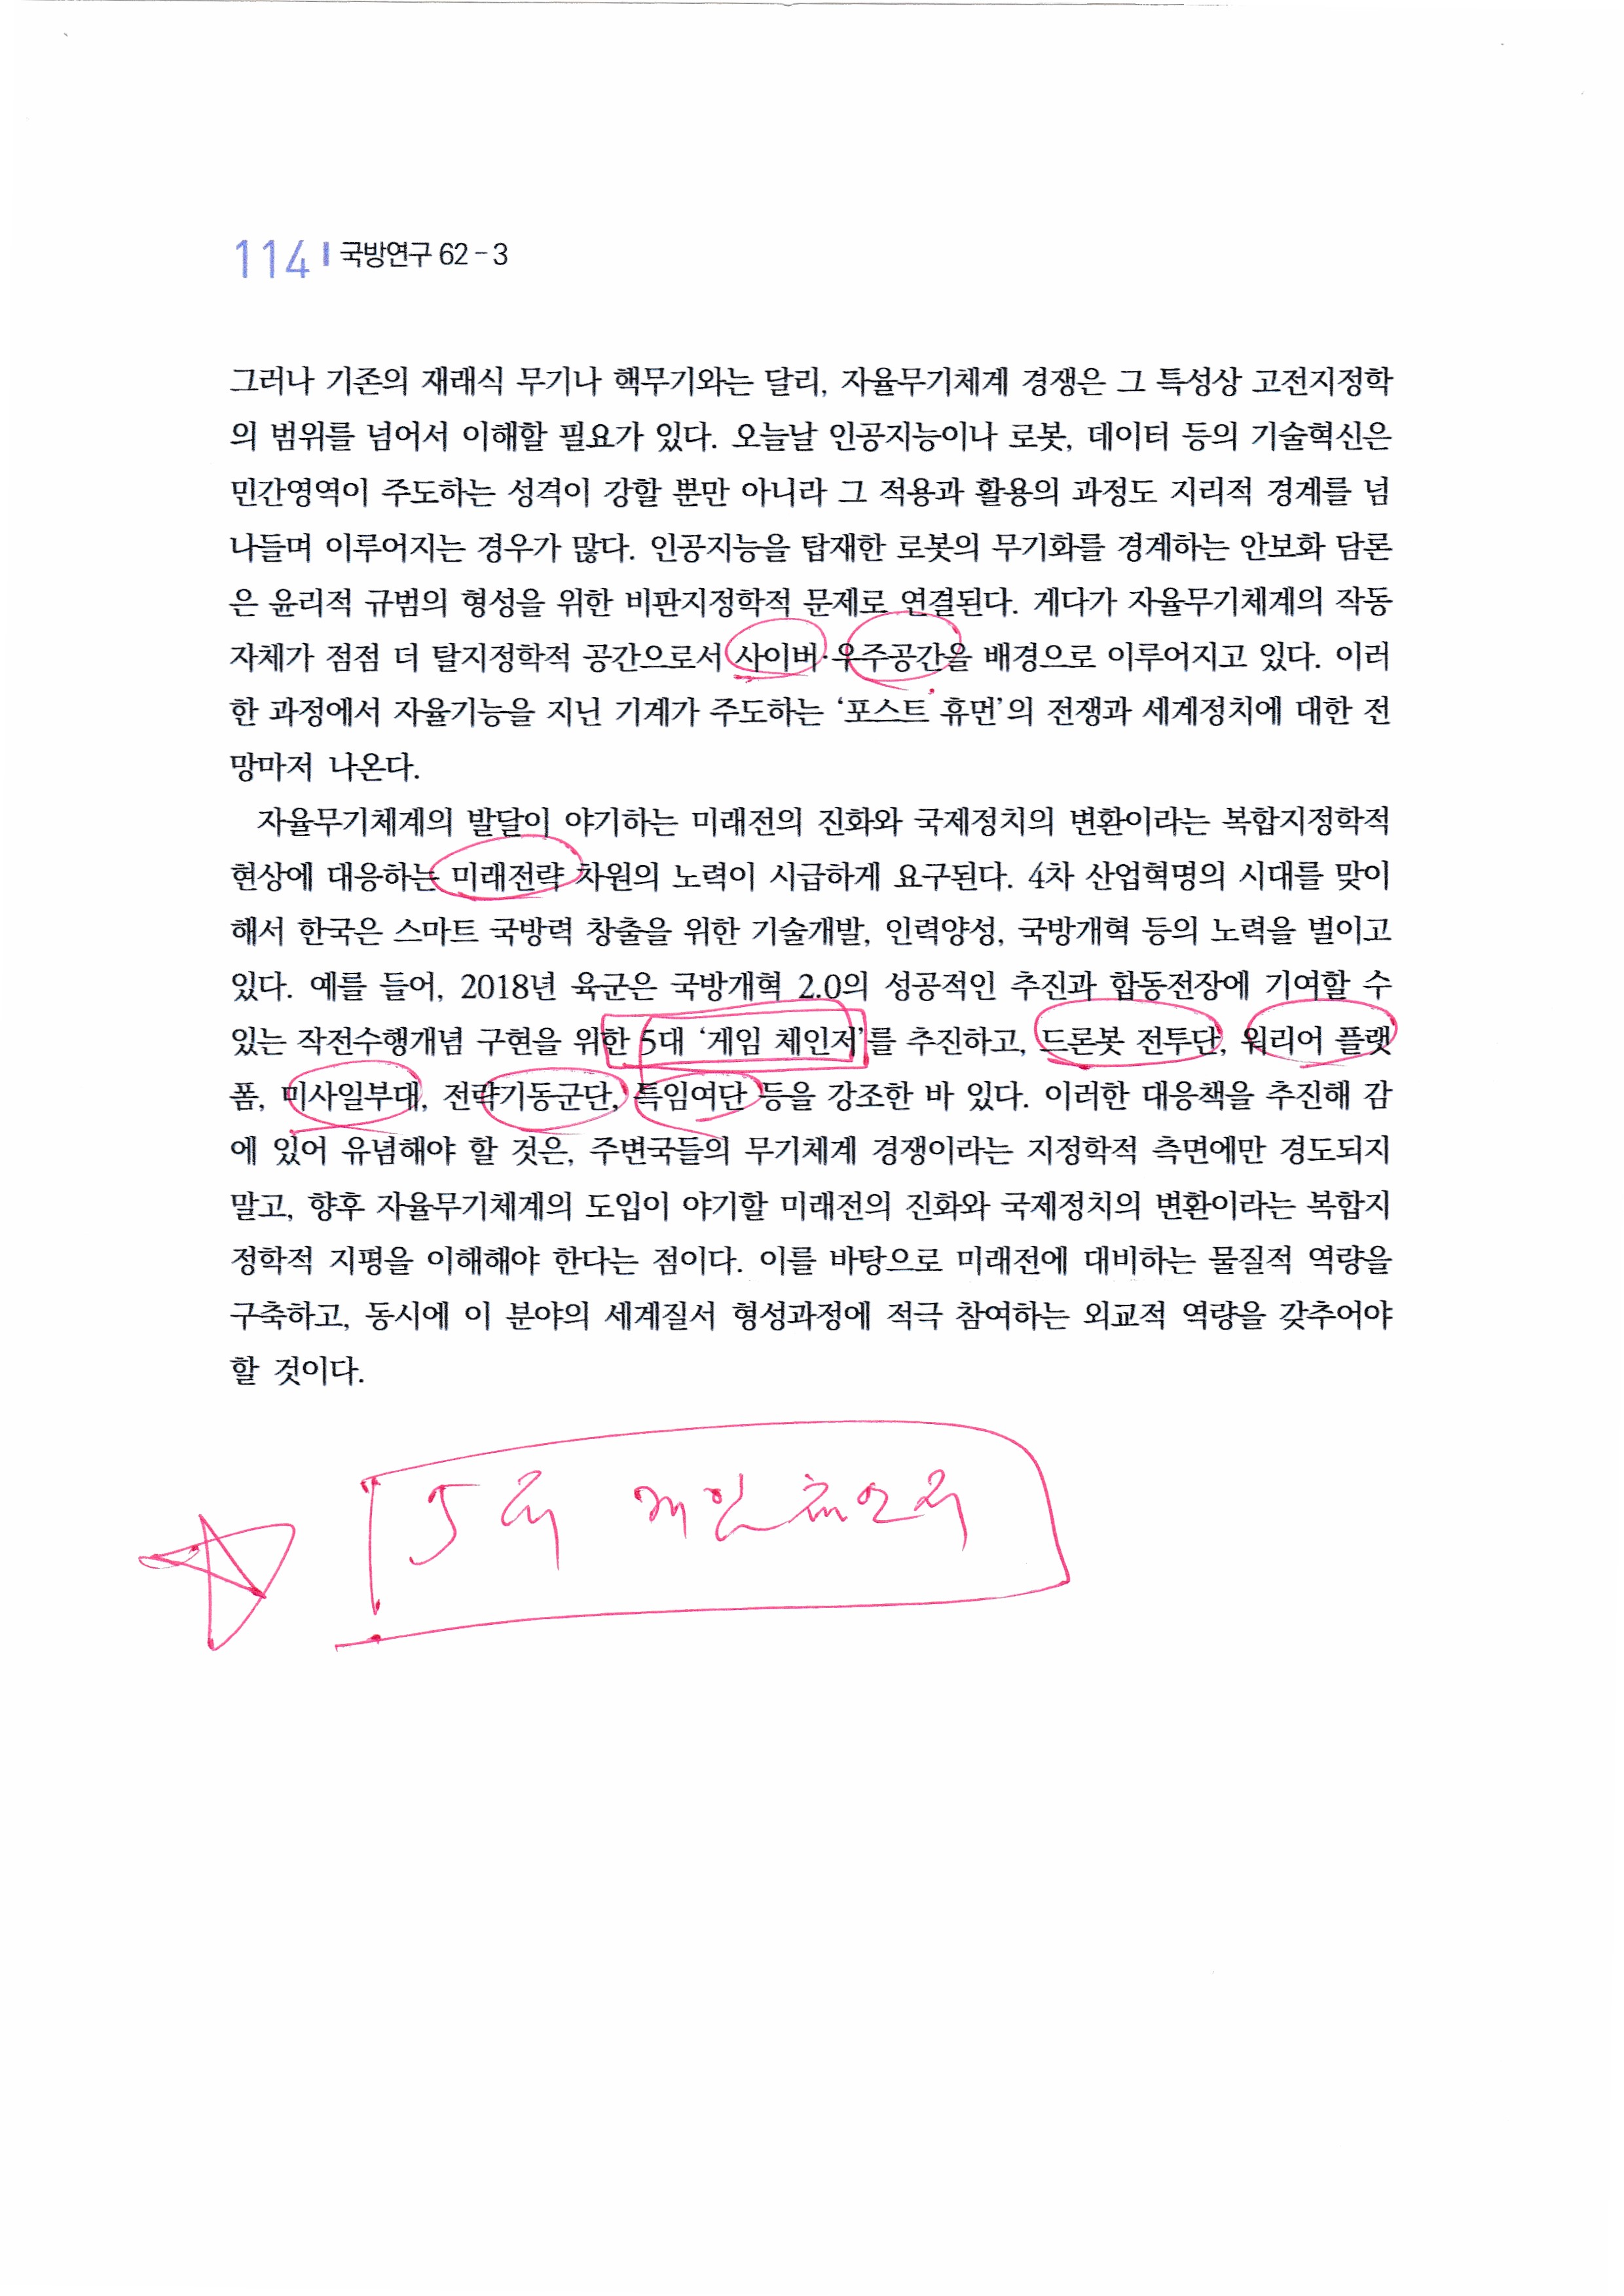 114 국방연구 62-3
그러나 기존의 재래식 무기나 핵무기와는 달리, 자율무기체계 경쟁은 그 특성상 고전지정학
의 범위를 넘어서 이해할 필요가 있다. 오늘날 인공지능이나 로봇, 데이터 등의 기술혁신은
민간영역이 주도하는 성격이 강할 뿐만 아니라 그 적용과 활용의 과정도 지리적 경계를 넘
나들며 이루어지는 경우가 많다. 인공지능을 탑재한 로봇의 무기화를 경계하는 안보화 담론
은 윤리적 규범의 형성을 위한 비판지정학적 문제로 연결된다. 게다가 자율무기체계의 작동
자체가 점점 더 탈지정학적 공간으로서 사이버·우주공간을 배경으로 이루어지고 있다. 이러
한 과정에서 자율기능을 지닌 기계가 주도하는 ‘포스트 휴먼’의 전쟁과 세계정치에 대한 전
망마저 나온다.
자율무기체계의 발달이 야기하는 미래전의 진화와 국제정치의 변환이라는 복합지정학적
현상에 대응하는 미래전략 차원의 노력이 시급하게 요구된다. 4차 산업혁명의 시대를 맞이
해서 한국은 스마트 국방력 창출을 위한 기술개발, 인력양성, 국방개혁 등의 노력을 벌이고
있다. 예를 들어, 2018년 육군은 국방개혁 2.0의 성공적인 추진과 합동전장에 기여할 수
있는 작전수행개념 구현을 위한 5대 ‘게임 체인저’를 추진하고, 드론봇 전투단, 워리어 플랫
폼, 미사일부대, 전략기동군단, 특임여단 등을 강조한 바 있다. 이러한 대응책을 추진해 감
에 있어 유념해야 할 것은, 주변국들의 무기체계 경쟁이라는 지정학적 측면에만 경도되지
말고, 향후 자율무기체계의 도입이 야기할 미래전의 진화와 국제정치의 변환이라는 복합지
정학적 지평을 이해해야 한다는 점이다. 이를 바탕으로 미래전에 대비하는 물질적 역량을
구축하고, 동시에 이 분야의 세계질서 형성과정에 적극 참여하는 외교적 역량을 갖추어야
할 것이다.
5대 게임 체인저